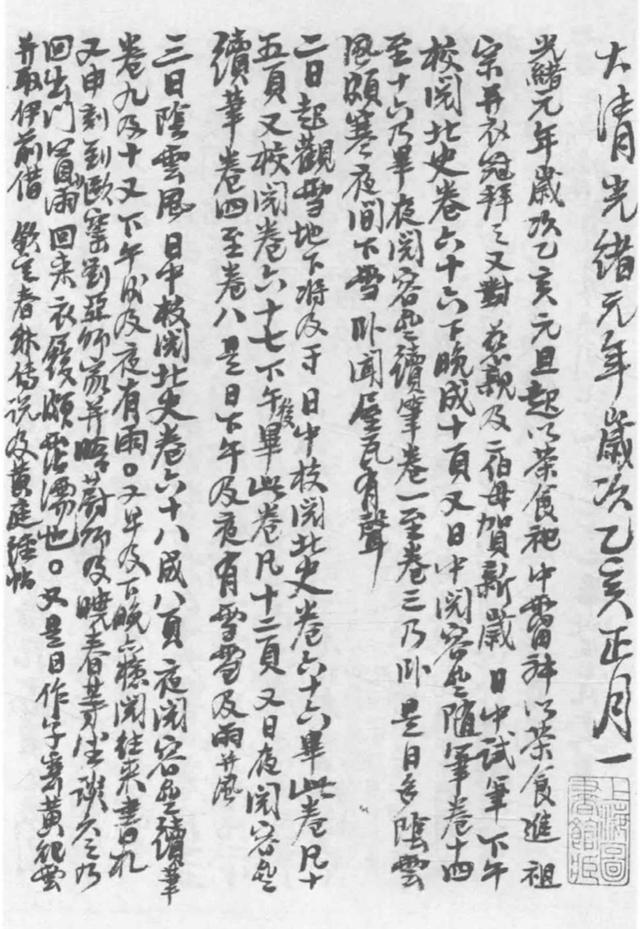 大清光緒元年歲次乙亥正月一
光緒元年歲次乙亥元旦起以茶食祀中霤神以茶食進 祖
宗并衣冠拜之又對 慈親及二伯母賀新歲 日中試筆 下午
校閱北史卷六十六下晚成十頁又日中閱容齋隨筆卷十四
至十六乃畢夜閱容齋續筆卷一至卷三乃卧 是日多陰雲
風頗寒夜間下雪 卧聞屋瓦有聲
二日起觀雪地下將及寸 日中校閱北史卷六十六畢此卷凡十
五頁又校閱卷六十七下午後畢此卷凡十二頁 又日夜閱容齋
續筆卷四至卷八 是日下午及夜有雪雪及雨并風
三日陰雲風 日中校閱北史卷六十八成八頁 夜閱容齋續筆
卷九及十又下午及夜有雨。又早及下晚亦檢閱往來書札
又申刻到歐窰劉亞師家并晤蔚師及曉春等坐談久之乃
回出門冒雨回来衣履頗霑濡也。又是日作字寄黃
并取伊前借 欽定春秋傳說及黃庭經帖
上海圖書館藏